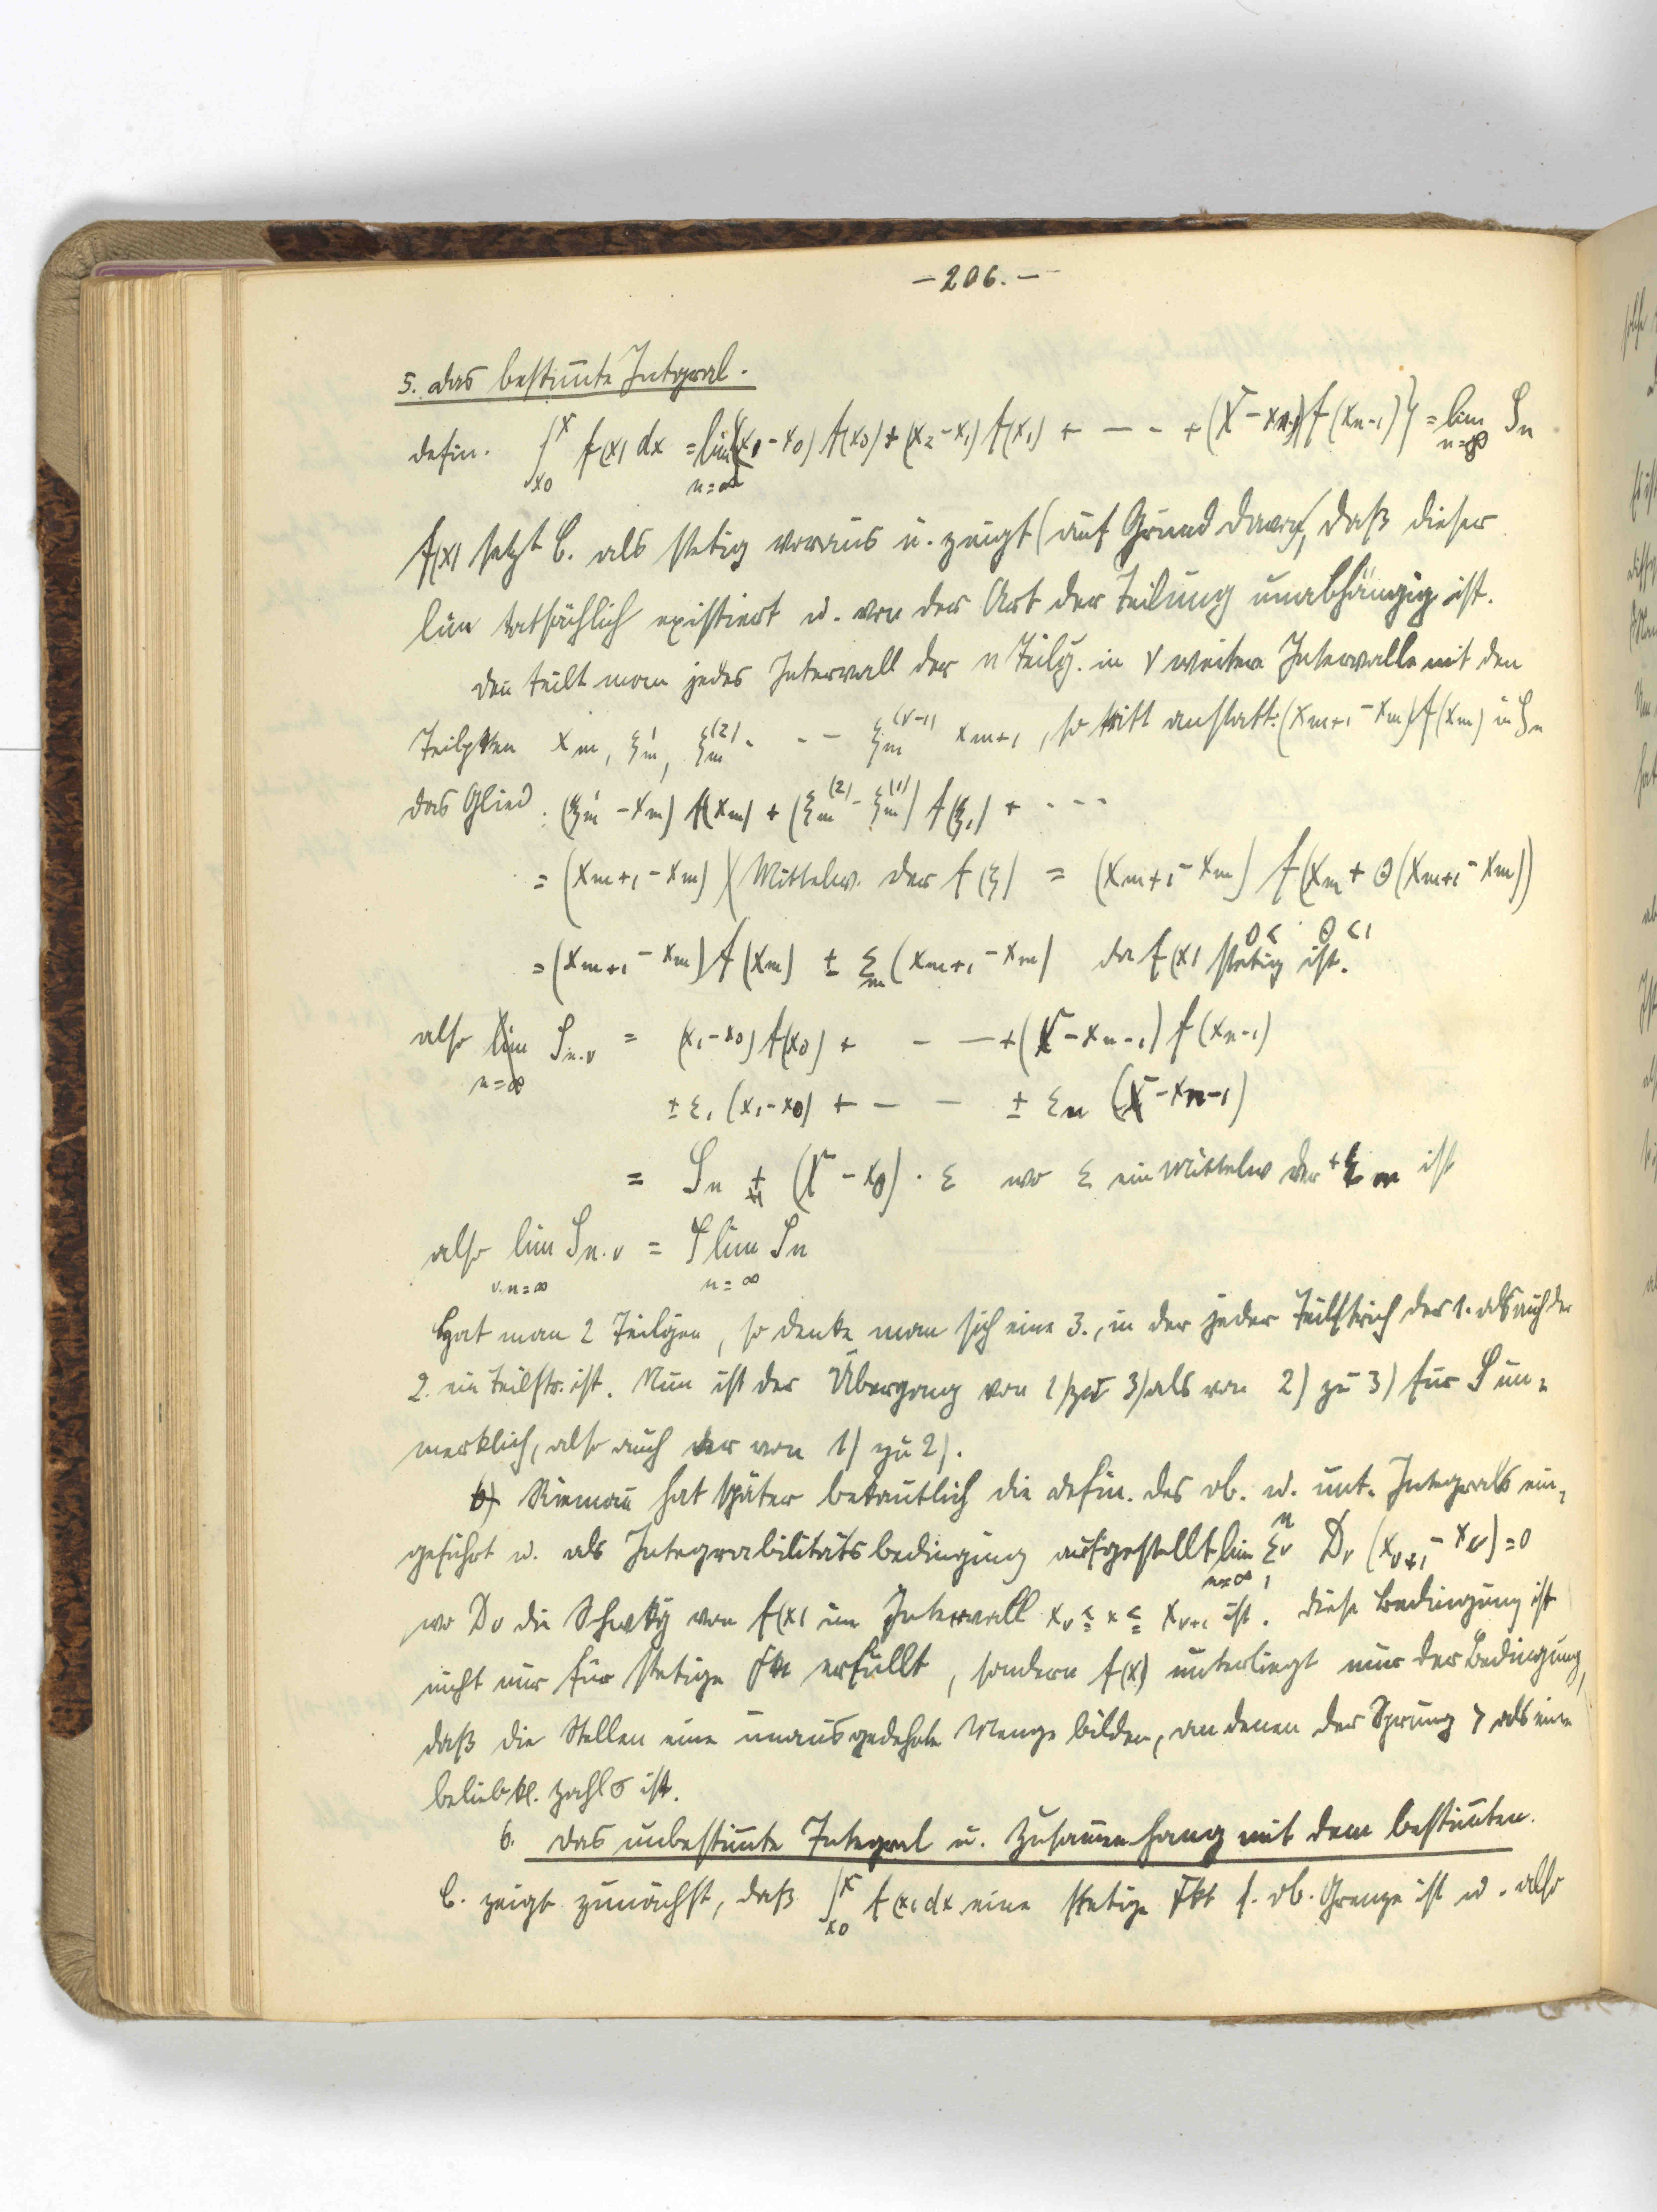 – 206. –
5. Das bestim̅te Integral.
Defin. ∫_{x₀}^{X} f(x) dx = lim_{n=∞} {(x₁-x₀) f(x₀) + (x₂-x₁) f(x₁) + – - + (X-x_{n-1}) f(x_{n-1})} = lim_{n=∞} S_n
f(x) setzt C. als stetig voraus u. zeigt (auf Grund davon), daß dieser
lim tatsächlich existiert u. von der Art der Teilung unabhängig ist.
Den̅ teilt man jedes Intervall der n Teilg. in ν weitere Intervalle mit den
Teilpkten x_m, ξ'_m, ξ_m^{(2)} - - – ξ_m^{(ν-1)} x_{m+1}, so tritt anstatt: (x_{m+1}-x_m) f(x_m) in S_n
das Glied: (ξ'_m - x_m) f(x_m) + (ξ_m^{(2)} - ξ_m^{(1)}) f(ξ₁) + - - -
= (x_{m+1}-x_m) (Mittelw. der f(ξ) = (x_{m+1}-x_m) f(x_m + Θ(x_{m+1}-x_m))
0 < Θ < 1
= (x_{m+1}-x_m) f(x_m) ± ε_m (x_{m+1}-x_m) da f(x) stetig ist.
also S_{n.ν} = (x₁-x₀) f(x₀) + – – + (X-x_{n-1}) f(x_{n-1})
± ε₁ (x₁-x₀) + – – ± ε_n (X-x_{n-1})
= S_n ± (X-x₀) · ε wo ε ein Mittelw der ± ε_m ist
also lim_{ν.n=∞} S_{n.ν} = lim_{n=∞} S_n
Hat man 2 Teilgen, so denke man sich eine 3., in der jeder Teilstrich der 1. als auch der
2. ein Teilstr. ist. Nun ist der Übergang von 1) zu 3) als von 2) zu 3) für S un=
merklich, also auch der von 1) zu 2).
Rieman̅ hat später bekan̅tlich die Defin. des ob. u. unt. Integrals ein=
geführt u. als Integrabilitätsbedingung aufgestellt lim_{n=∞} Σ_1^n ν D_ν (x_{ν+1} - x_ν) = 0
wo D_ν die Schwkg von f(x) im Intervall x_ν ≦ x ≦ x_{ν+1} ist. Diese Bedingung ist
nicht nur für stetige Fkt erfüllt, sondern f(x) unterliegt nur der Bedingung,
daß die Stellen eine unausgedehnte Menge bilden, an denen der Sprung > als eine
belieb kl. Zahl σ ist.
6. Das unbestim̅te Integral u. Zusam̅enhang mit dem bestim̅ten.
C. zeigt zunächst, daß ∫_{x₀}^{X} f(x) dx eine stetige Fkt s. ob. Grenze ist u. also